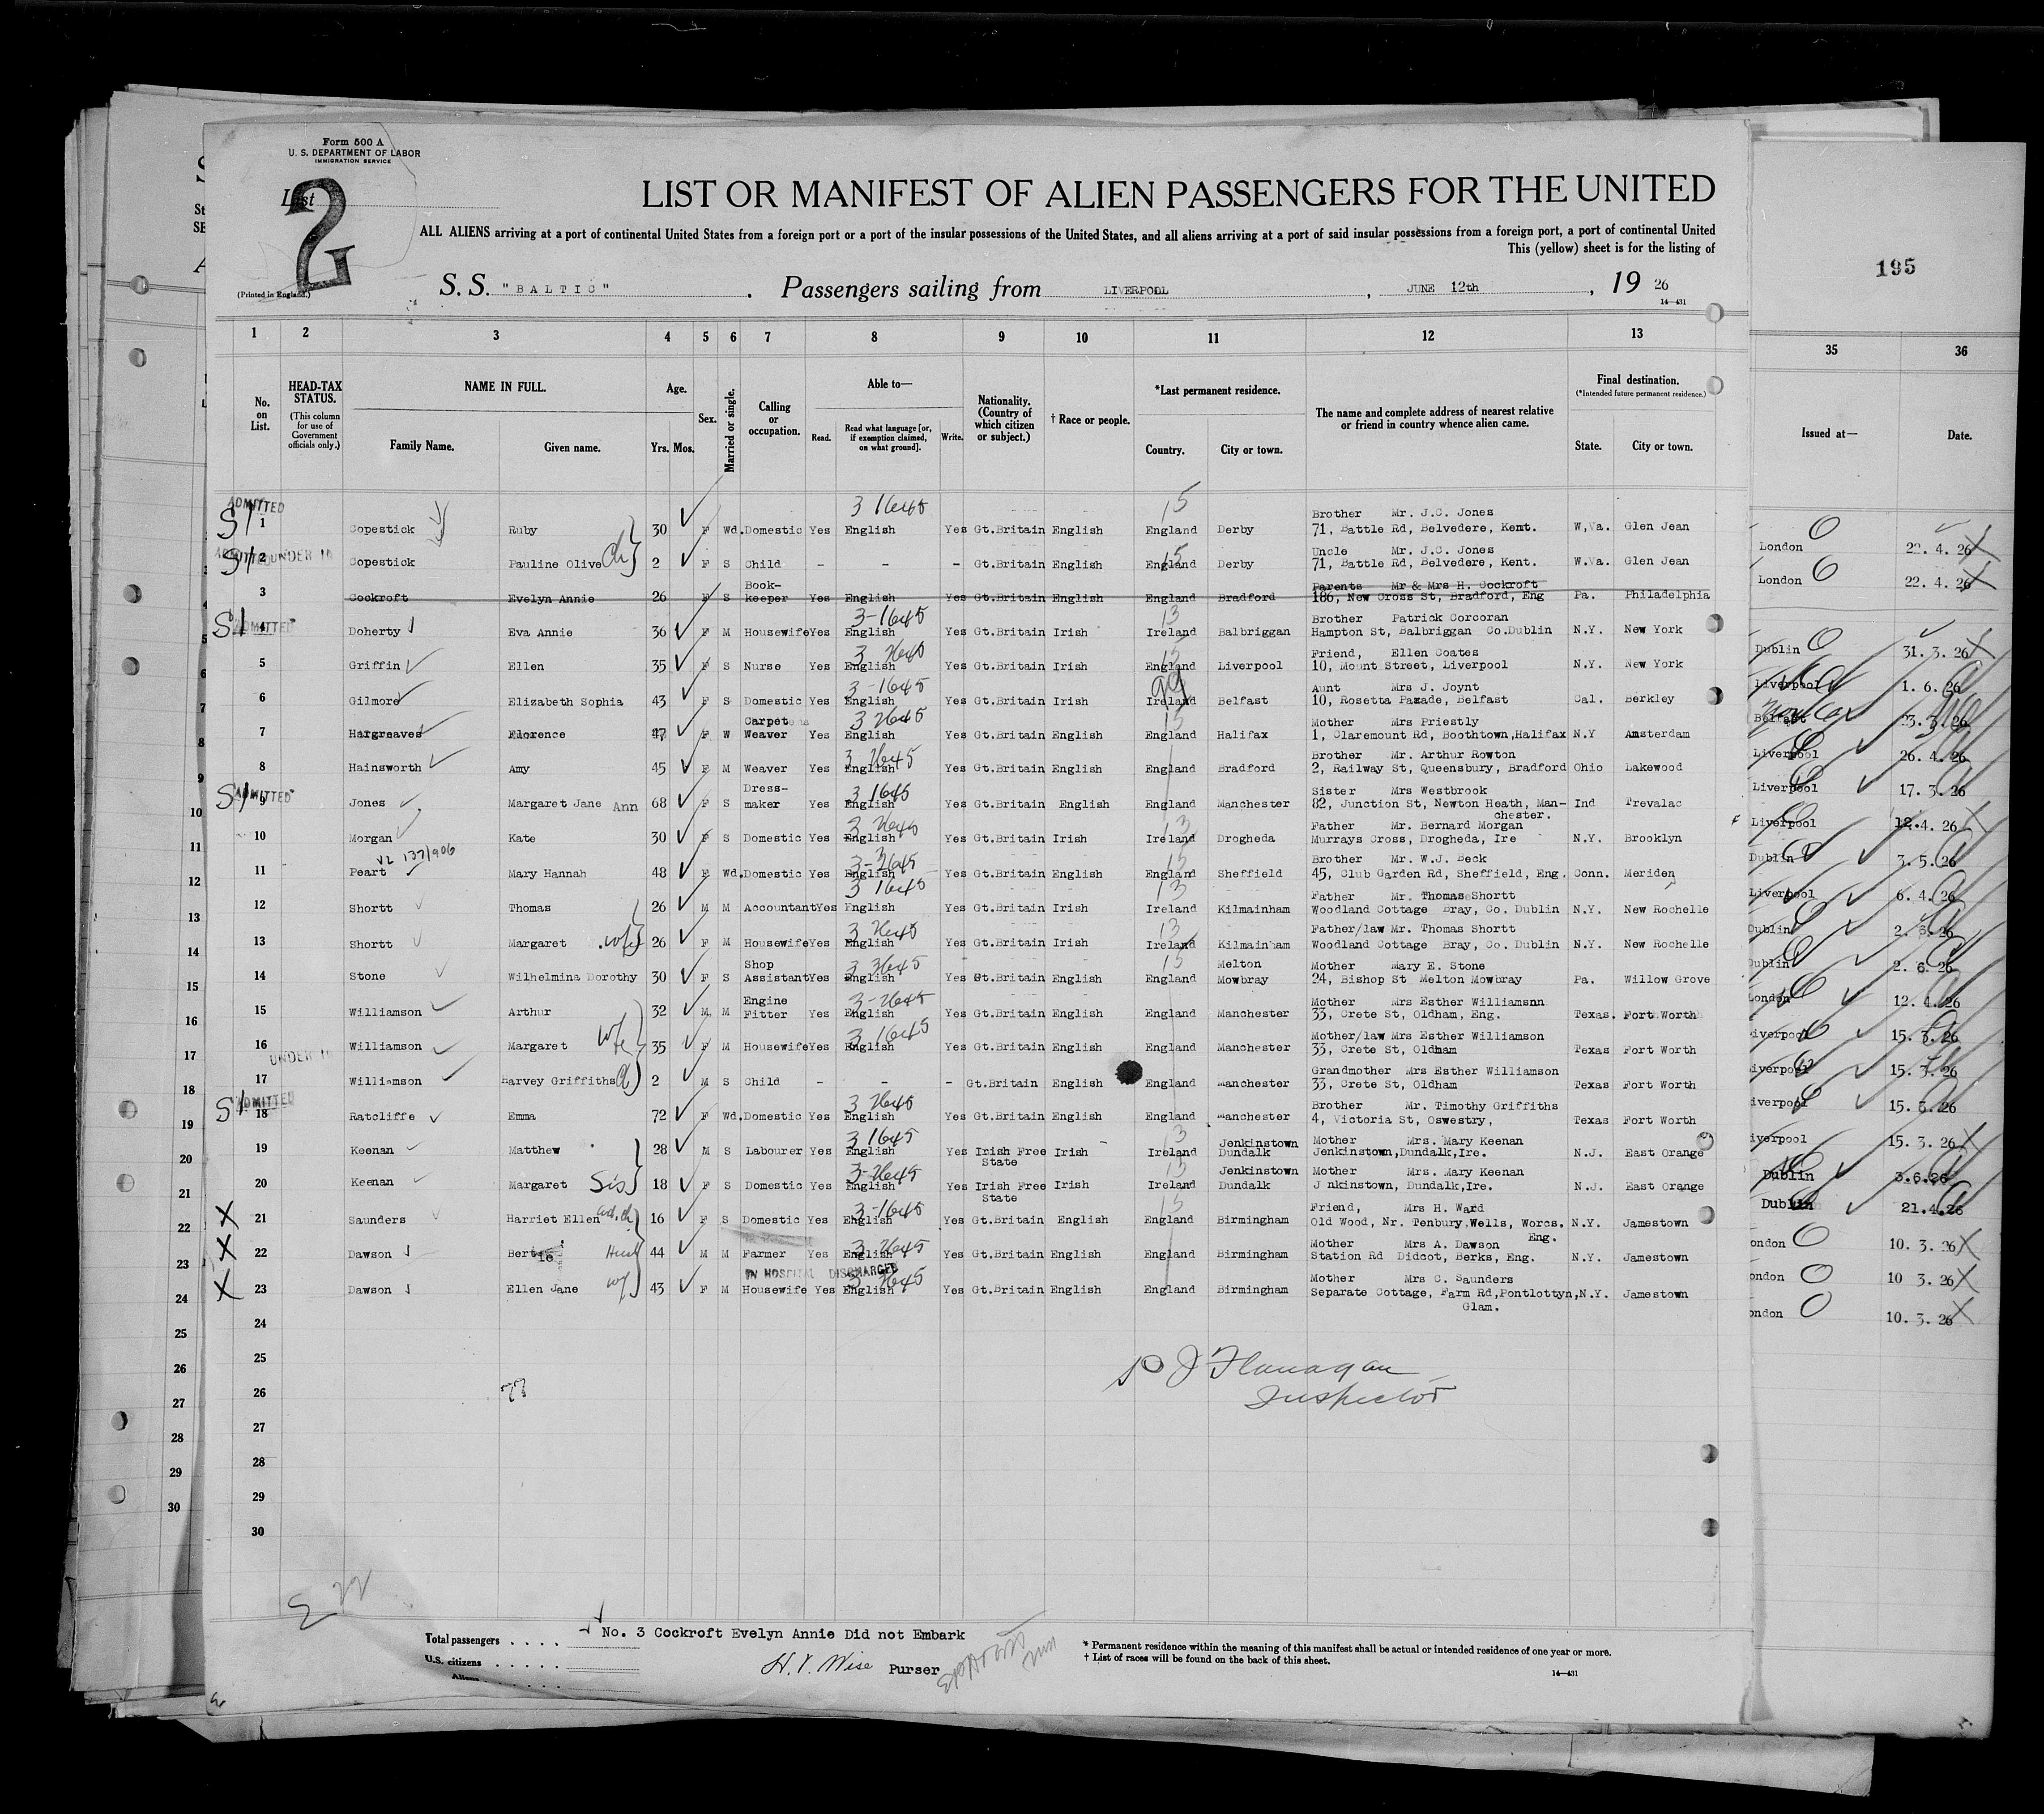 Form 500 A
U. S. DEPARTMENT OF LABOR
IMMIGRATION SERVICE
List
2
LIST OR MANIFEST OF ALIEN PASSENGERS FOR THE UNITED
ALL ALIENS arriving at a port of continental United States from a foreign port or a port of the insular possessions of the United States, and all aliens arriving at a port of said insular possessions from a foreign port, a port of continental United
This (yellow) sheet is for the listing of
(Printed in England.)
S. S. "BALTIC" . Passengers sailing from LIVERPOOL , JUNE 12th , 19 26
14—431
195
1 2 3 4 5 6 7 8 9 10 11 12 13 35 36
No. on List.
HEAD-TAX STATUS.
(This column for use of Government officials only.)
NAME IN FULL.
Family Name. Given name.
Age.
Yrs. Mos.
Sex.
Married or single.
Calling or occupation.
Able to—
Read. Read what language [or, if exemption claimed, on what ground]. Write.
Nationality. (Country of which citizen or subject.)
† Race or people.
*Last permanent residence.
Country. City or town.
The name and complete address of nearest relative or friend in country whence alien came.
Final destination.
(*Intended future permanent residence.)
State. City or town.
Issued at— Date.
ADMITTED
S1 1 Copestick Ruby 30 F Wd. Domestic Yes English Yes Gt.Britain English England Derby Brother Mr. J.C. Jones 71, Battle Rd, Belvedere, Kent. W.Va. Glen Jean London 22. 4. 26
S1 2 UNDER 16 Copestick Pauline Olive Ch 2 F S Child - - - Gt.Britain English England Derby Uncle Mr. J.C. Jones 71, Battle Rd, Belvedere, Kent. W.Va. Glen Jean London 22. 4. 26
3 Cockroft Evelyn Annie 26 F S Book-keeper Yes English Yes Gt.Britain English England Bradford Parents Mr & Mrs H. Cockroft 186, New Cross St, Bradford, Eng Pa. Philadelphia
S1 ADMITTED 4 Doherty Eva Annie 36 F M Housewife Yes English Yes Gt.Britain Irish Ireland Balbriggan Brother Patrick Corcoran Hampton St, Balbriggan Co.Dublin N.Y. New York Dublin 31. 3. 26
5 Griffin Ellen 35 F S Nurse Yes English Yes Gt.Britain Irish England Liverpool Friend, Ellen Coates 10, Mount Street, Liverpool N.Y. New York Liverpool 1. 6. 26
6 Gilmore Elizabeth Sophia 43 F S Domestic Yes English Yes Gt.Britain Irish Ireland Belfast Aunt Mrs J. Joynt 10, Rosetta Parade, Belfast Cal. Berkley Belfast 23. 3. 26
7 Hargreaves Florence 47 F W Carpet Weaver Yes English Yes Gt.Britain English England Halifax Mother Mrs Priestly 1, Claremount Rd, Boothtown,Halifax N.Y Amsterdam Liverpool 26. 4. 26
8 Hainsworth Amy 45 F M Weaver Yes English Yes Gt.Britain English England Bradford Brother Mr. Arthur Rowton 2, Railway St, Queensbury, Bradford Ohio Lakewood Liverpool 17. 3. 26
S1 ADMITTED 9 Jones Margaret Jane Ann 68 F S Dress-maker Yes English Yes Gt.Britain English England Manchester Sister Mrs Westbrook 82, Junction St, Newton Heath, Man-chester. Ind Trevalac Liverpool 12.4. 26
10 Morgan Kate 30 F S Domestic Yes English Yes Gt.Britain Irish Ireland Drogheda Father Mr. Bernard Morgan Murrays Cross, Drogheda, Ire N.Y. Brooklyn Dublin 3. 5. 26
VL 137/906
11 Peart Mary Hannah 48 F Wd. Domestic Yes English Yes Gt.Britain English England Sheffield Brother Mr. W.J. Beck 45, Club Garden Rd, Sheffield, Eng. Conn. Meriden Liverpool 6. 4. 26
12 Shortt Thomas 26 M M Accountant Yes English Yes Gt.Britain Irish Ireland Kilmainham Father Mr. Thomas Shortt Woodland Cottage Bray, Co. Dublin N.Y. New Rochelle Dublin
13 Shortt Margaret wfe 26 F M Housewife Yes English Yes Gt.Britain Irish Ireland Kilmainham Father/law Mr. Thomas Shortt Woodland Cottage Bray, Co. Dublin N.Y. New Rochelle Dublin
14 Stone Wilhelmina Dorothy 30 F S Shop Assistant Yes English Yes Gt.Britain English England Melton Mowbray Mother Mary E. Stone 24, Bishop St Melton Mowbray Pa. Willow Grove London 12. 4. 26
15 Williamson Arthur 32 M M Engine Fitter Yes English Yes Gt.Britain English England Manchester Mother Mrs Esther Williamsnn 33, Crete St, Oldham, Eng. Texas. Fort Worth Liverpool 15. 3. 26
16 Williamson Margaret wfe 35 F M Housewife Yes English Yes Gt.Britain English England Manchester Mother/law Mrs Esther Williamson 33, Crete St, Oldham Texas Fort Worth iverpool 15. 3. 26
UNDER 16 17 Williamson Harvey Griffiths Ch 2 M S Child - - - Gt.Britain English England Manchester Grandmother Mrs Esther Williamson 33, Crete St, Oldham Texas Fort Worth iverpool 15. 3. 26
S1 ADMITTED 18 Ratcliffe Emma 72 F Wd. Domestic Yes English Yes Gt.Britain English England Manchester Brother Mr. Timothy Griffiths 4, Victoria St, Oswestry, Texas Fort Worth iverpool 15. 3. 26
19 Keenan Matthew 28 M S Labourer Yes English Yes Irish Free State Irish Ireland Jenkinstown Dundalk Mother Mrs. Mary Keenan Jenkinstown,Dundalk,Ire. N.J. East Orange Dublin 3.6.26
20 Keenan Margaret Sis 18 F S Domestic Yes English Yes Irish Free State Irish Ireland Jenkinstown Dundalk Mother Mrs. Mary Keenan J nkinstown, Dundalk,Ire. N.J. East Orange Dublin 21.4.26
X 21 Saunders Harriet Ellen ad. ch 16 F S Domestic Yes English Yes Gt.Britain English England Birmingham Friend, Mrs H. Ward Old Wood, Nr. Tenbury,Wells, Worcs. Eng. N.Y. Jamestown ondon 10. 3. 26
X 22 Dawson Bertie Husb 44 M M Farmer Yes English Yes Gt.Britain English England Birmingham Mother Mrs A. Dawson Station Rd Didcot, Berks, Eng. N.Y. Jamestown ondon 10 3. 26
IN HOSPITAL DISCHARGED
X 23 Dawson Ellen Jane wf 43 F M Housewife Yes English Yes Gt.Britain English England Birmingham Mother Mrs C. Saunders Separate Cottage, Farm Rd,Pontlottyn, Glam. N.Y. Jamestown ondon 10. 3. 26
24
25
26
27
28
29
30
P J Flanagan
Inspector
Total passengers . . . .
No. 3 Cockroft Evelyn Annie Did not Embark
U.S. citizens . . . . .
Aliens . . . . . .
H. V. Wise Purser
* Permanent residence within the meaning of this manifest shall be actual or intended residence of one year or more.
† List of races will be found on the back of this sheet.
14—431